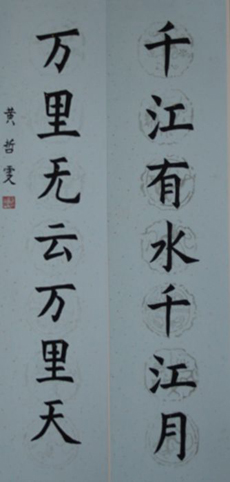 千江有水千江月
万里无云万里天
黄哲雯